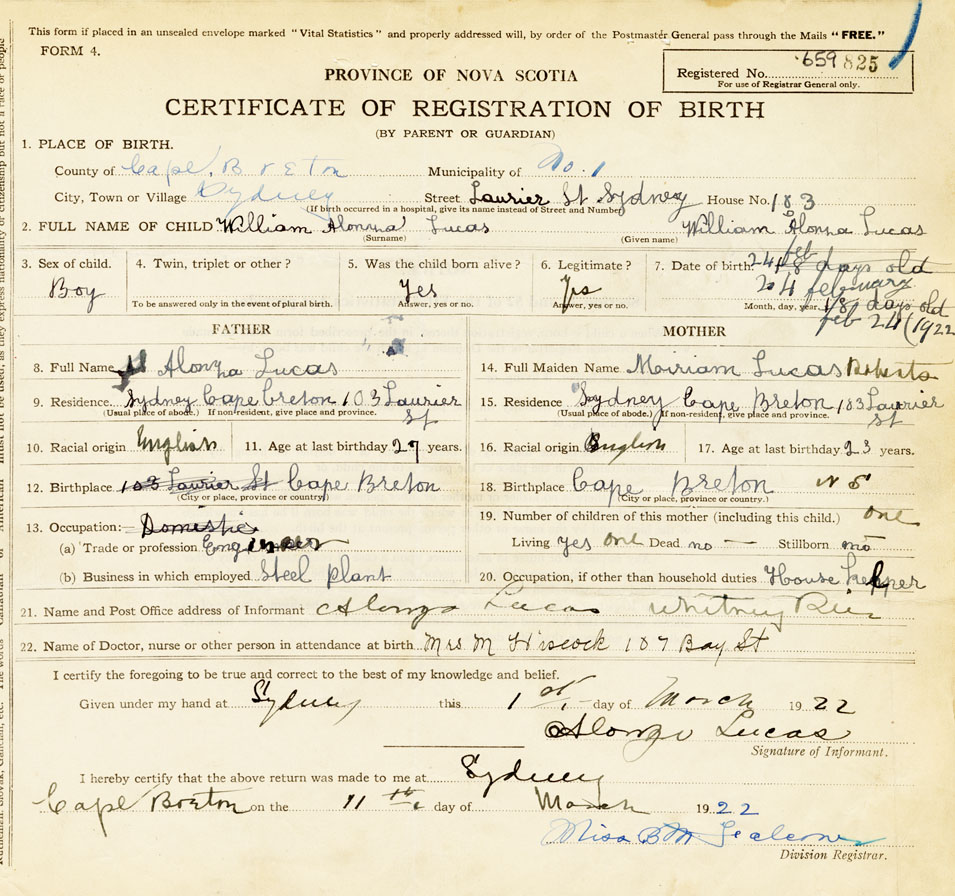 This form if placed in an unsealed envelope marked "Vital Statistics" and properly addressed will, by order of the Postmaster General pass through the Mails "FREE."
FORM 4.
659 825
Registered No.
For use of Registrar General only.
PROVINCE OF NOVA SCOTIA
CERTIFICATE OF REGISTRATION OF BIRTH
(BY PARENT OR GUARDIAN)
1. PLACE OF BIRTH.
County of Cape Breton Municipality of No. 1
City, Town or Village Sydney Street Laurier St Sydney House No. 183
(If birth occurred in a hospital, give its name instead of Street and Number)
2. FULL NAME OF CHILD William Alonza Lucas William Alonza Lucas
(Surname) (Given name)
3. Sex of child. 4. Twin, triplet or other? 5. Was the child born alive? 6. Legitimate? 7. Date of birth. 24 feb 18 days old
Boy Yes Yes 24 february
To be answered only in the event of plural birth. Answer, yes or no. Answer, yes or no. Month, day, year. 18 days old
feb 24 (1922
FATHER MOTHER
8. Full Name Alonza Lucas 14. Full Maiden Name Miriam Lucas Roberts
9. Residence Sydney Cape breton 103 Laurier St 15. Residence Sydney Cape Breton 103 Laurier St
(Usual place of abode.) If nonresident, give place and province. (Usual place of abode.) If nonresident, give place and province.
10. Racial origin English 11. Age at last birthday 27 years. 16. Racial origin English 17. Age at last birthday 23 years.
12. Birthplace 103 Laurier St Cape Breton 18. Birthplace Cape Breton N S
(City or place, province or country) (City or place, province or country.)
13. Occupation:— Domestic 19. Number of children of this mother (including this child.) one
(a) Trade or profession Engineer Living yes one Dead no — Stillborn no
(b) Business in which employed Steel plant 20. Occupation, if other than household duties House keeper
21. Name and Post Office address of Informant Alonzo Lucas Whitney Pier
22. Name of Doctor, nurse or other person in attendance at birth Mrs M Hiscock 107 Bay St
I certify the foregoing to be true and correct to the best of my knowledge and belief.
Given under my hand at Sydney this 1 st day of March 1922
Alonzo Lucas
Signature of Informant.
I hereby certify that the above return was made to me at Sydney
Cape Breton on the 11 th day of March 1922
Miss B M
Division Registrar.